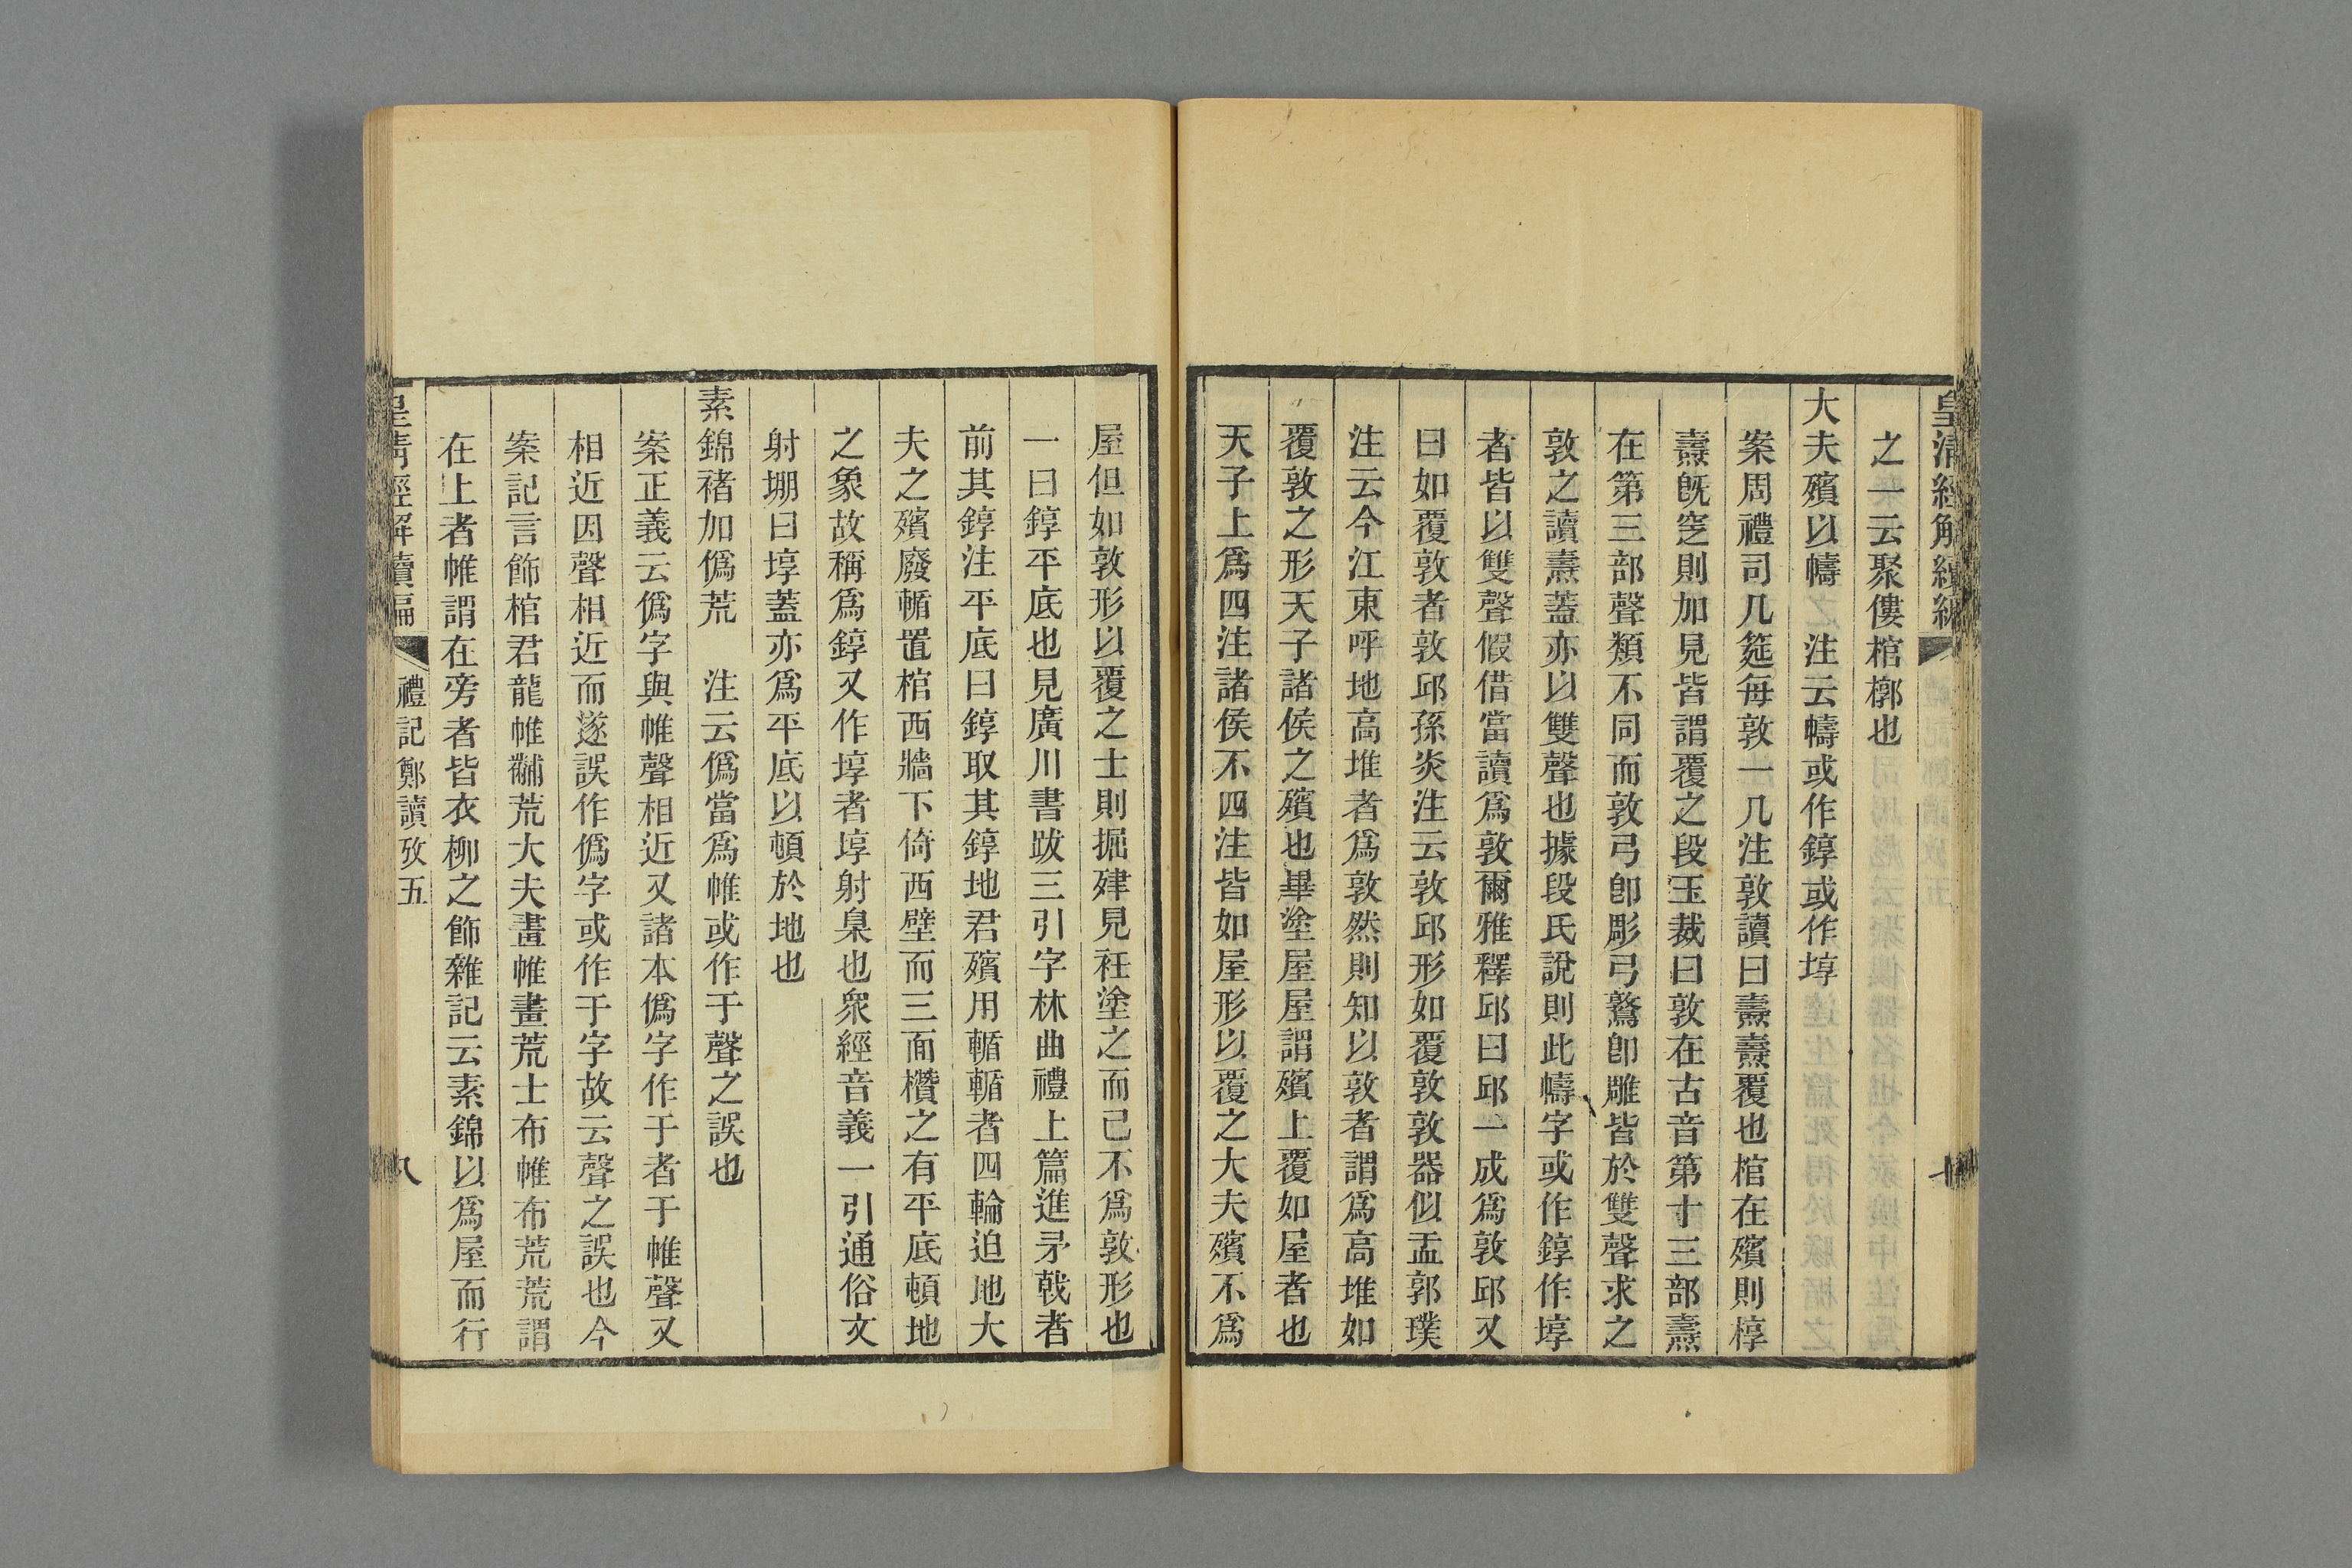 皇清經解續編
之一云聚僂棺槨也
大夫殯以幬之　注云幬或作錞或作埻
案周禮司几筵每敦一几注敦讀曰燾燾覆也棺在殯則椁
燾旣窆則加見皆謂覆之段玉裁曰敦在古音第十三部燾
在第三部聲類不同而敦弓卽彫弓鷻卽雕皆於雙聲求之
敦之讀燾蓋亦以雙聲也據段氏說則此幬字或作錞作埻
者皆以雙聲假借當讀爲敦爾雅釋邱曰邱一成爲敦邱又
曰如覆敦者敦邱孫炎注云敦邱形如覆敦敦器似盂郭璞
注云今江東呼地高堆者爲敦然則知以敦者謂爲高堆如
覆敦之形天子諸侯之殯也畢塗屋屋謂殯上覆如屋者也
天子上爲四注諸侯不四注皆如屋形以覆之大夫殯不爲
屋但如敦形以覆之士則掘肂見衽塗之而已不爲敦形也
一曰錞平底也見廣川書跋三引字林曲禮上篇進矛戟者
前其錞注平底曰錞取其錞地君殯用輴輴者四輪迫地大
夫之殯廢輴置棺西牆下倚西壁而三面欑之有平底頓地
之象故稱爲錞又作埻者埻射臬也眾經音義一引通俗文
射堋曰埻蓋亦爲平底以頓於地也
素錦褚加僞荒　注云僞當爲帷或作于聲之誤也
案正義云僞字與帷聲相近又諸本僞字作于者于帷聲又
相近因聲相近而遂誤作僞字或作于字故云聲之誤也今
案記言飾棺君龍帷黼荒大夫畫帷畫荒士布帷布荒荒謂
在上者帷謂在旁者皆衣柳之飾雜記云素錦以爲屋而行
皇清經解續編　禮記鄭讀攷五　八